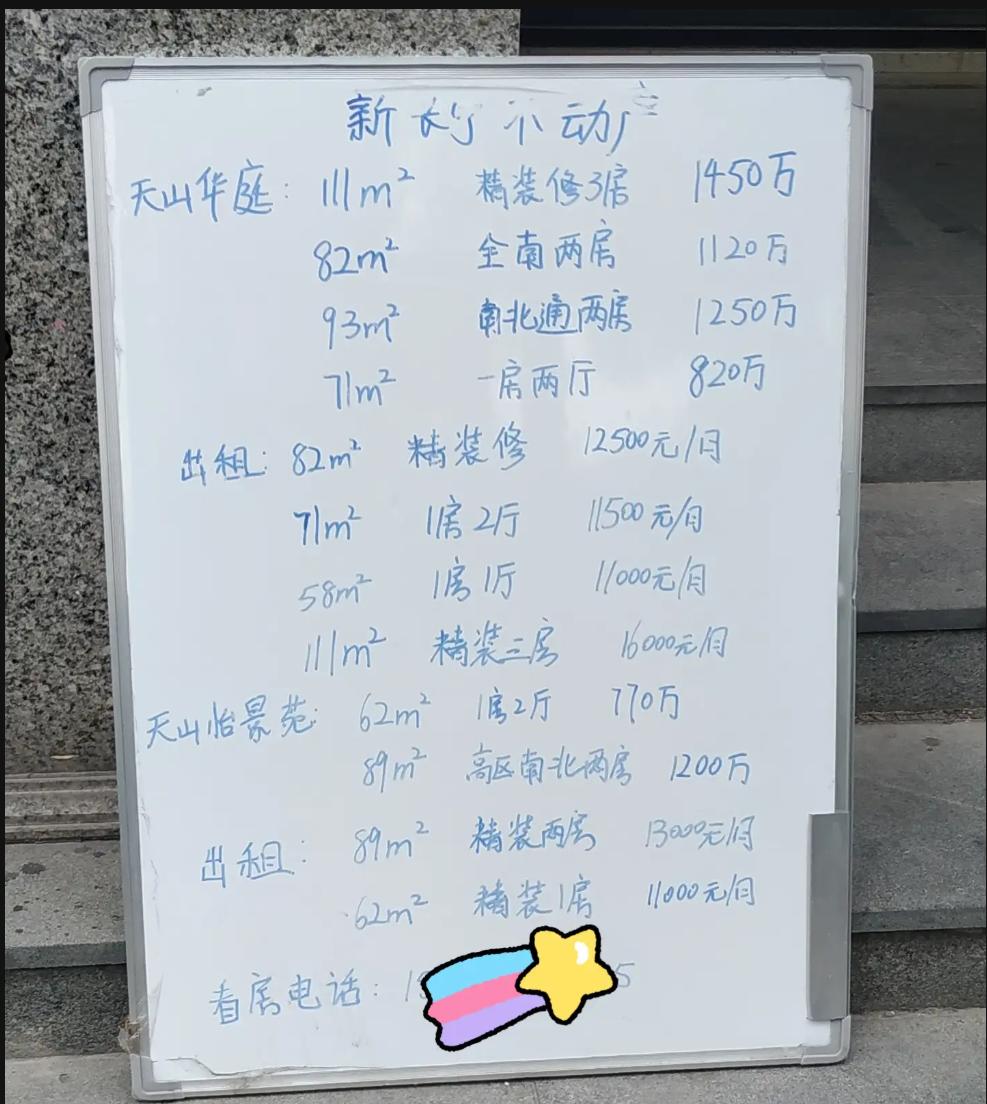 新长宁不动产
天山华庭: 111m² 精装修3房 1450万
82m² 全南两房 1120万
93m² 南北通两房 1250万
71m² 一房两厅 820万
出租: 82m² 精装修 12500元/月
71m² 1房2厅 11500元/月
58m² 1房1厅 11000元/月
111m² 精装三房 16000元/月
天山怡景苑: 62m² 1房2厅 770万
89m² 高区南北两房 1200万
出租: 89m² 精装两房 13000元/月
62m² 精装1房 11000元/月
看房电话: